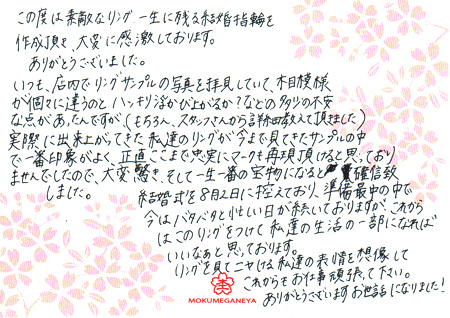 この度は素敵なリング 一生に残る結婚指輪を
作成頂き、大変に感激しております。
ありがとうございました。
いつも、店内でリングサンプルの写真を拝見していて、木目模様
が個々に違うのと ハッキリ浮かび上がるか？などの多少の不安
な点があったんですが、(もちろん、スタッフさんから詳細教えて頂きました)
実際に出来上がってきた私達のリングが今まで見てきたサンプルの中
で一番印象がよく、正直ここまで忠実にマークも再現頂けると思っており
ませんでしたので、大変驚き、そして一生一番の宝物になると 確信致
しました。
結婚式を8月2日に控えており、準備最中の中で
今はバタバタと忙しい日が続いておりますが、これから
はこのリングをつけて私達の生活の一部になれば
いいなぁと思っております。
リングを見てニヤける私達の表情を想像して
これからもお仕事頑張って下さい。
ありがとうございます お世話になりました！
MOKUMEGANEYA